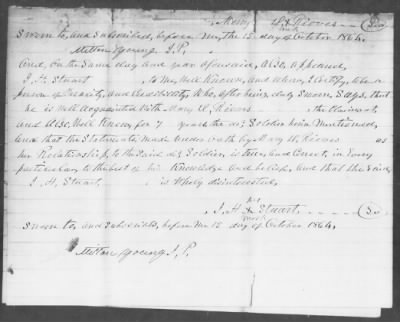 Mary H X Reeves
mark
Sworn to, and Subscribed, before Me, the 12 day of October 1864.
Milton Young J. P.
And, on the Same day and year aforesaid, Also, appeared,
J. H. Stuart to Me, Well Known, and whom I Certify, to be a
person of Veracity, and Credibility, Who, after being duly Sworn, Says, that
he is Well Acquainted With Mary H. Reeves the Claimant,
and Also, Well Knew, for 7 years the decd Soldier herein Mentioned,
And that the Statements, Made under oath by Mary H. Reeves as
her Relationship, to the Said decd Soldier, is True, and Correct, in Every
particular, to the best of his Knowledge and belief, and that the Said,
J. H. Stuart, is Wholy disinterested,
his
J. H. X Stuart
mark
Sworn to, and Subscribed, before Me 12 day of October 1864,
Milton Young J. P.